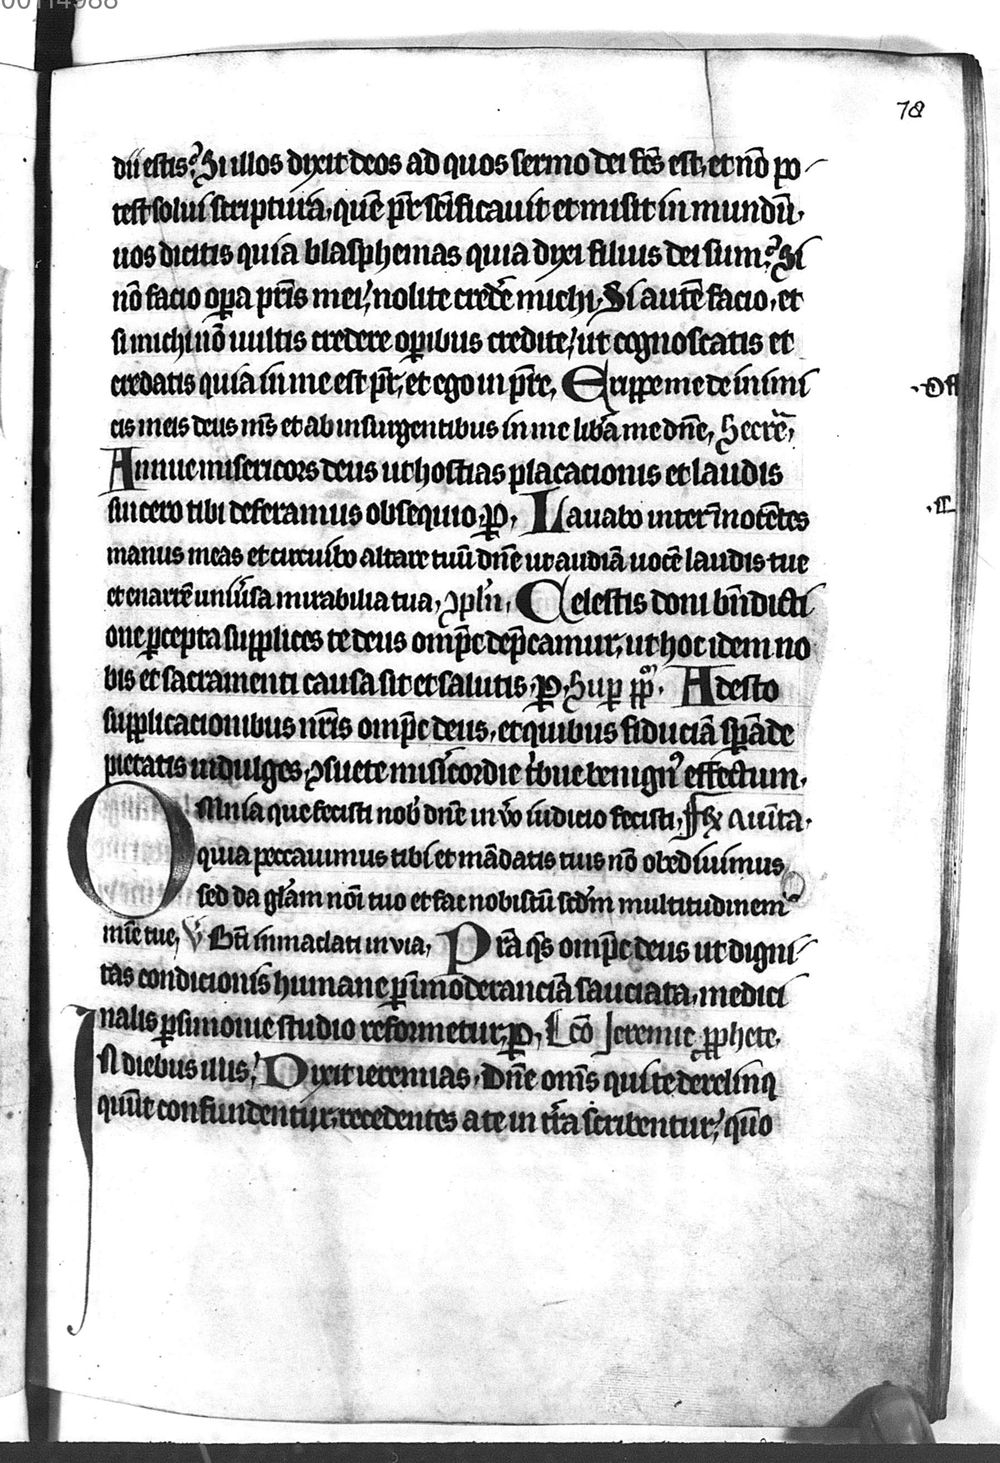 00114988
78
dii estis? Si illos dixit deos ad quos sermo dei fcs est, et nō po-
test solui scriptura, quē pr̄ scīficauit et misit in mundū,
uos dicitis quia blasphemas quia dixi filius dei sum? Si
nō facio opa pr̄is mei, nolite credē michi. Si autē facio, et
si michi nō uultis credere opibus credite, ut cognoscatis et
credatis quia in me est pr̄, et ego in pr̄e, Eripe me de inimi
.Off
cis meis deus ms̄ et ab insurgentibus in me libā me dn̄e, Secrē,
Annue misericors deus ut hostias placacionis et laudis
sincero tibi deferamus obsequio. P, Lauabo inter īnocētes
manus meas et circuibo altare tuū dn̄e ut audiā uocē laudis tue
et enarrē uniūsa mirabilia tua, 9pln̄, Celestis doni bn̄dicti
one pcepta supplices te deus omp̄c dep̄camur, ut hoc idem no
bis et sacramenti causa sit et salutis. P, Sup pp̄m. Adesto
supplicacionibus nr̄is omp̄c deus, et quibus fiduciā spāde
pietatis indulges, 9suete mis̄icordie tbue benign9 effectum,
Omnia que fecisti nob dn̄e in uō iudicio fecisti,
quia peccauimus tibi et mādatis tuis nō obediuimus
sed da glam nōi tuo et fac nobiscū scdm multitudinem
mīe tue, V Bti inmaclati in via, Prā qs omp̄c deus ut digni-
tas condicionis humane p īmoderanciā sauciata, medici
nalis psimonie studio reformetur, P, Lco Jeremie pphete.
IN diebus illis, Dixit ieremias. Dn̄e omn̄s qui te derelinq
quūt confundentur, recedentes a te in trā scribentur, qm̄o